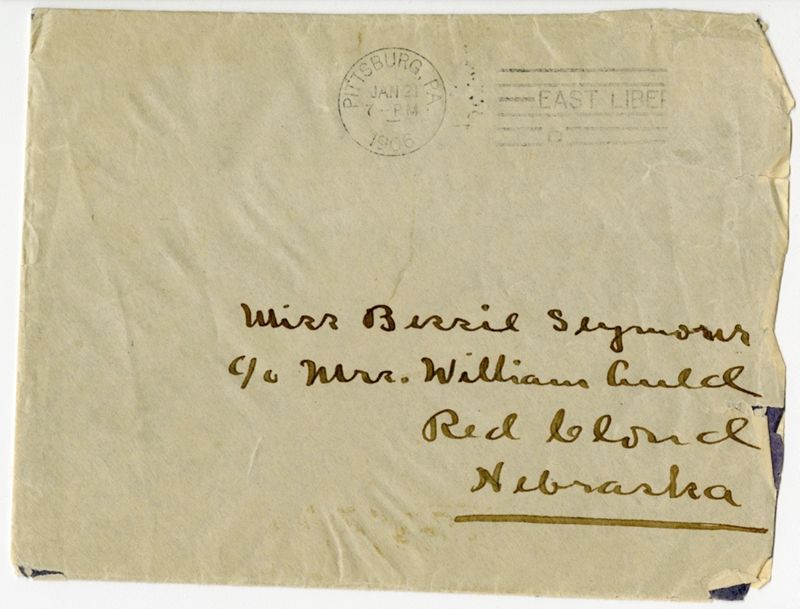 PITTSBURG, PA.
JAN 21
7 - PM
1906
EAST LIBER
Miss Bessie Seymour
c/o Mrs. William Auld
Red Cloud
Nebraska